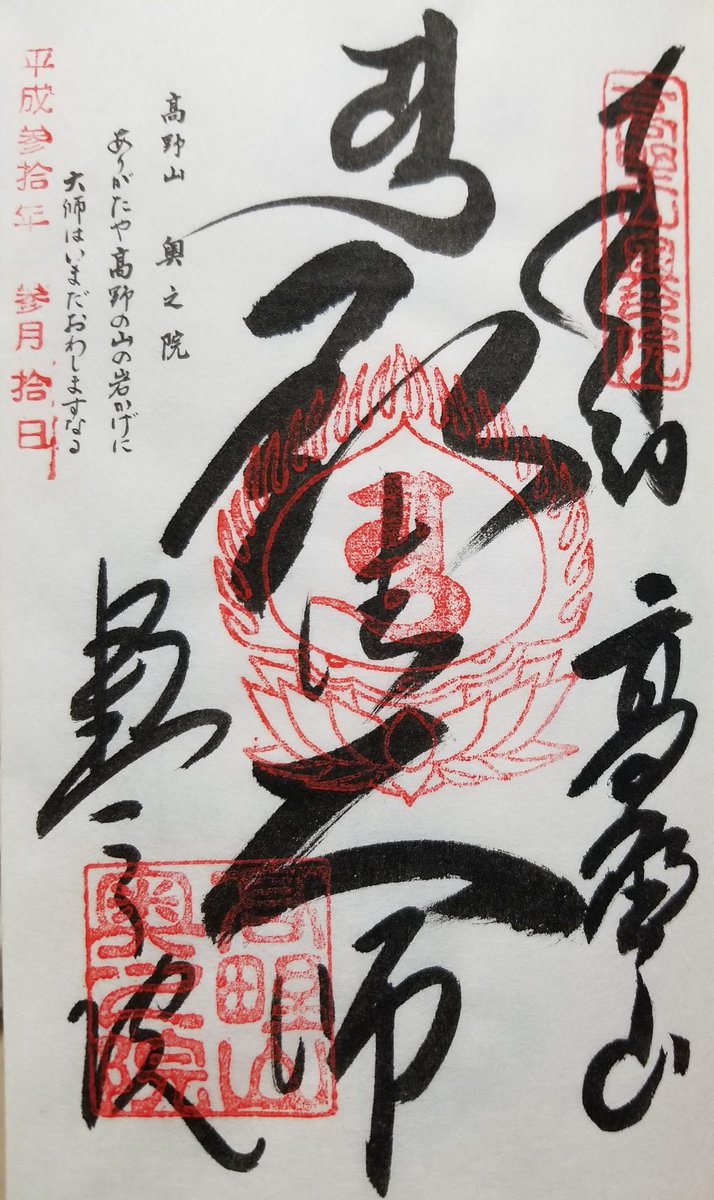 奉納 高野山
高野山奥之院
弘法大師
奥之院
高野山
奥之院
高野山 奥之院
ありがたや高野の山の岩かげに
大師はいまだおわしますなる
平成参拾年 参月拾日